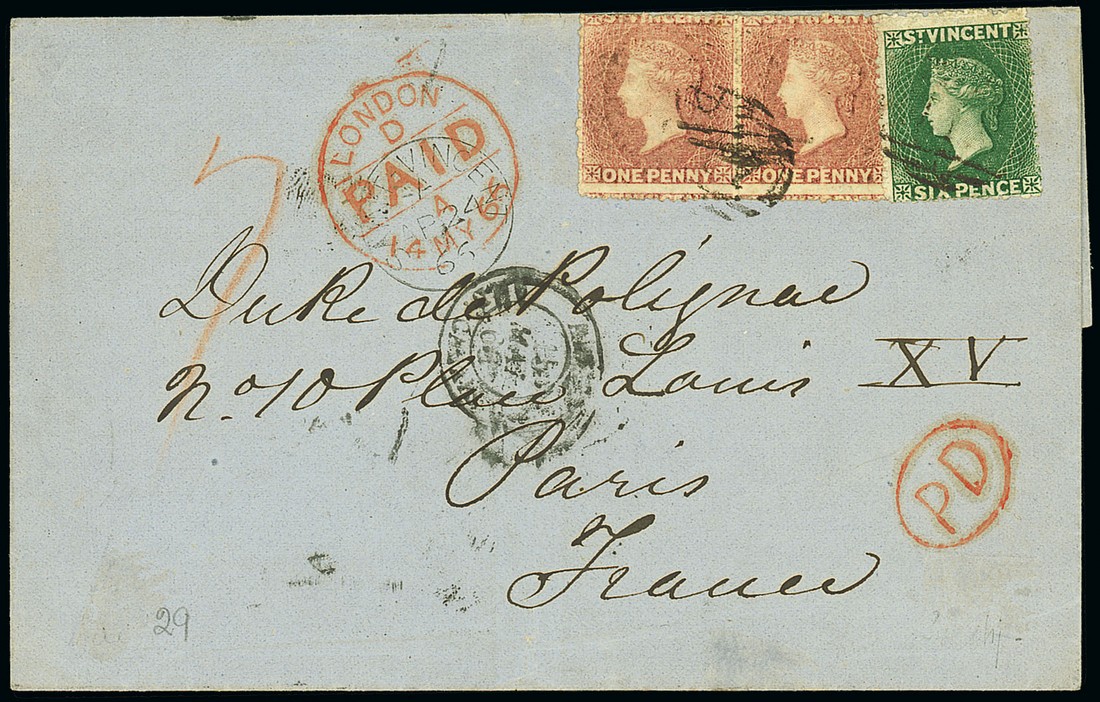 ST VINCENT
ONE PENNY ONE PENNY SIX PENCE
LONDON
D
PAID
A
14 MY 6
AP 24
7
Duke de Polignac
No. 10 Place Louis XV
Paris
France
PD
29